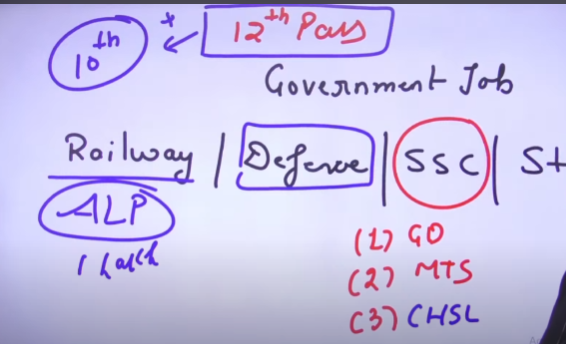 10th + 12th Pass
Government Job
Railway / Defence | SSC | St
ALP
1 Lakh
(1) GD
(2) MTS
(3) CHSL